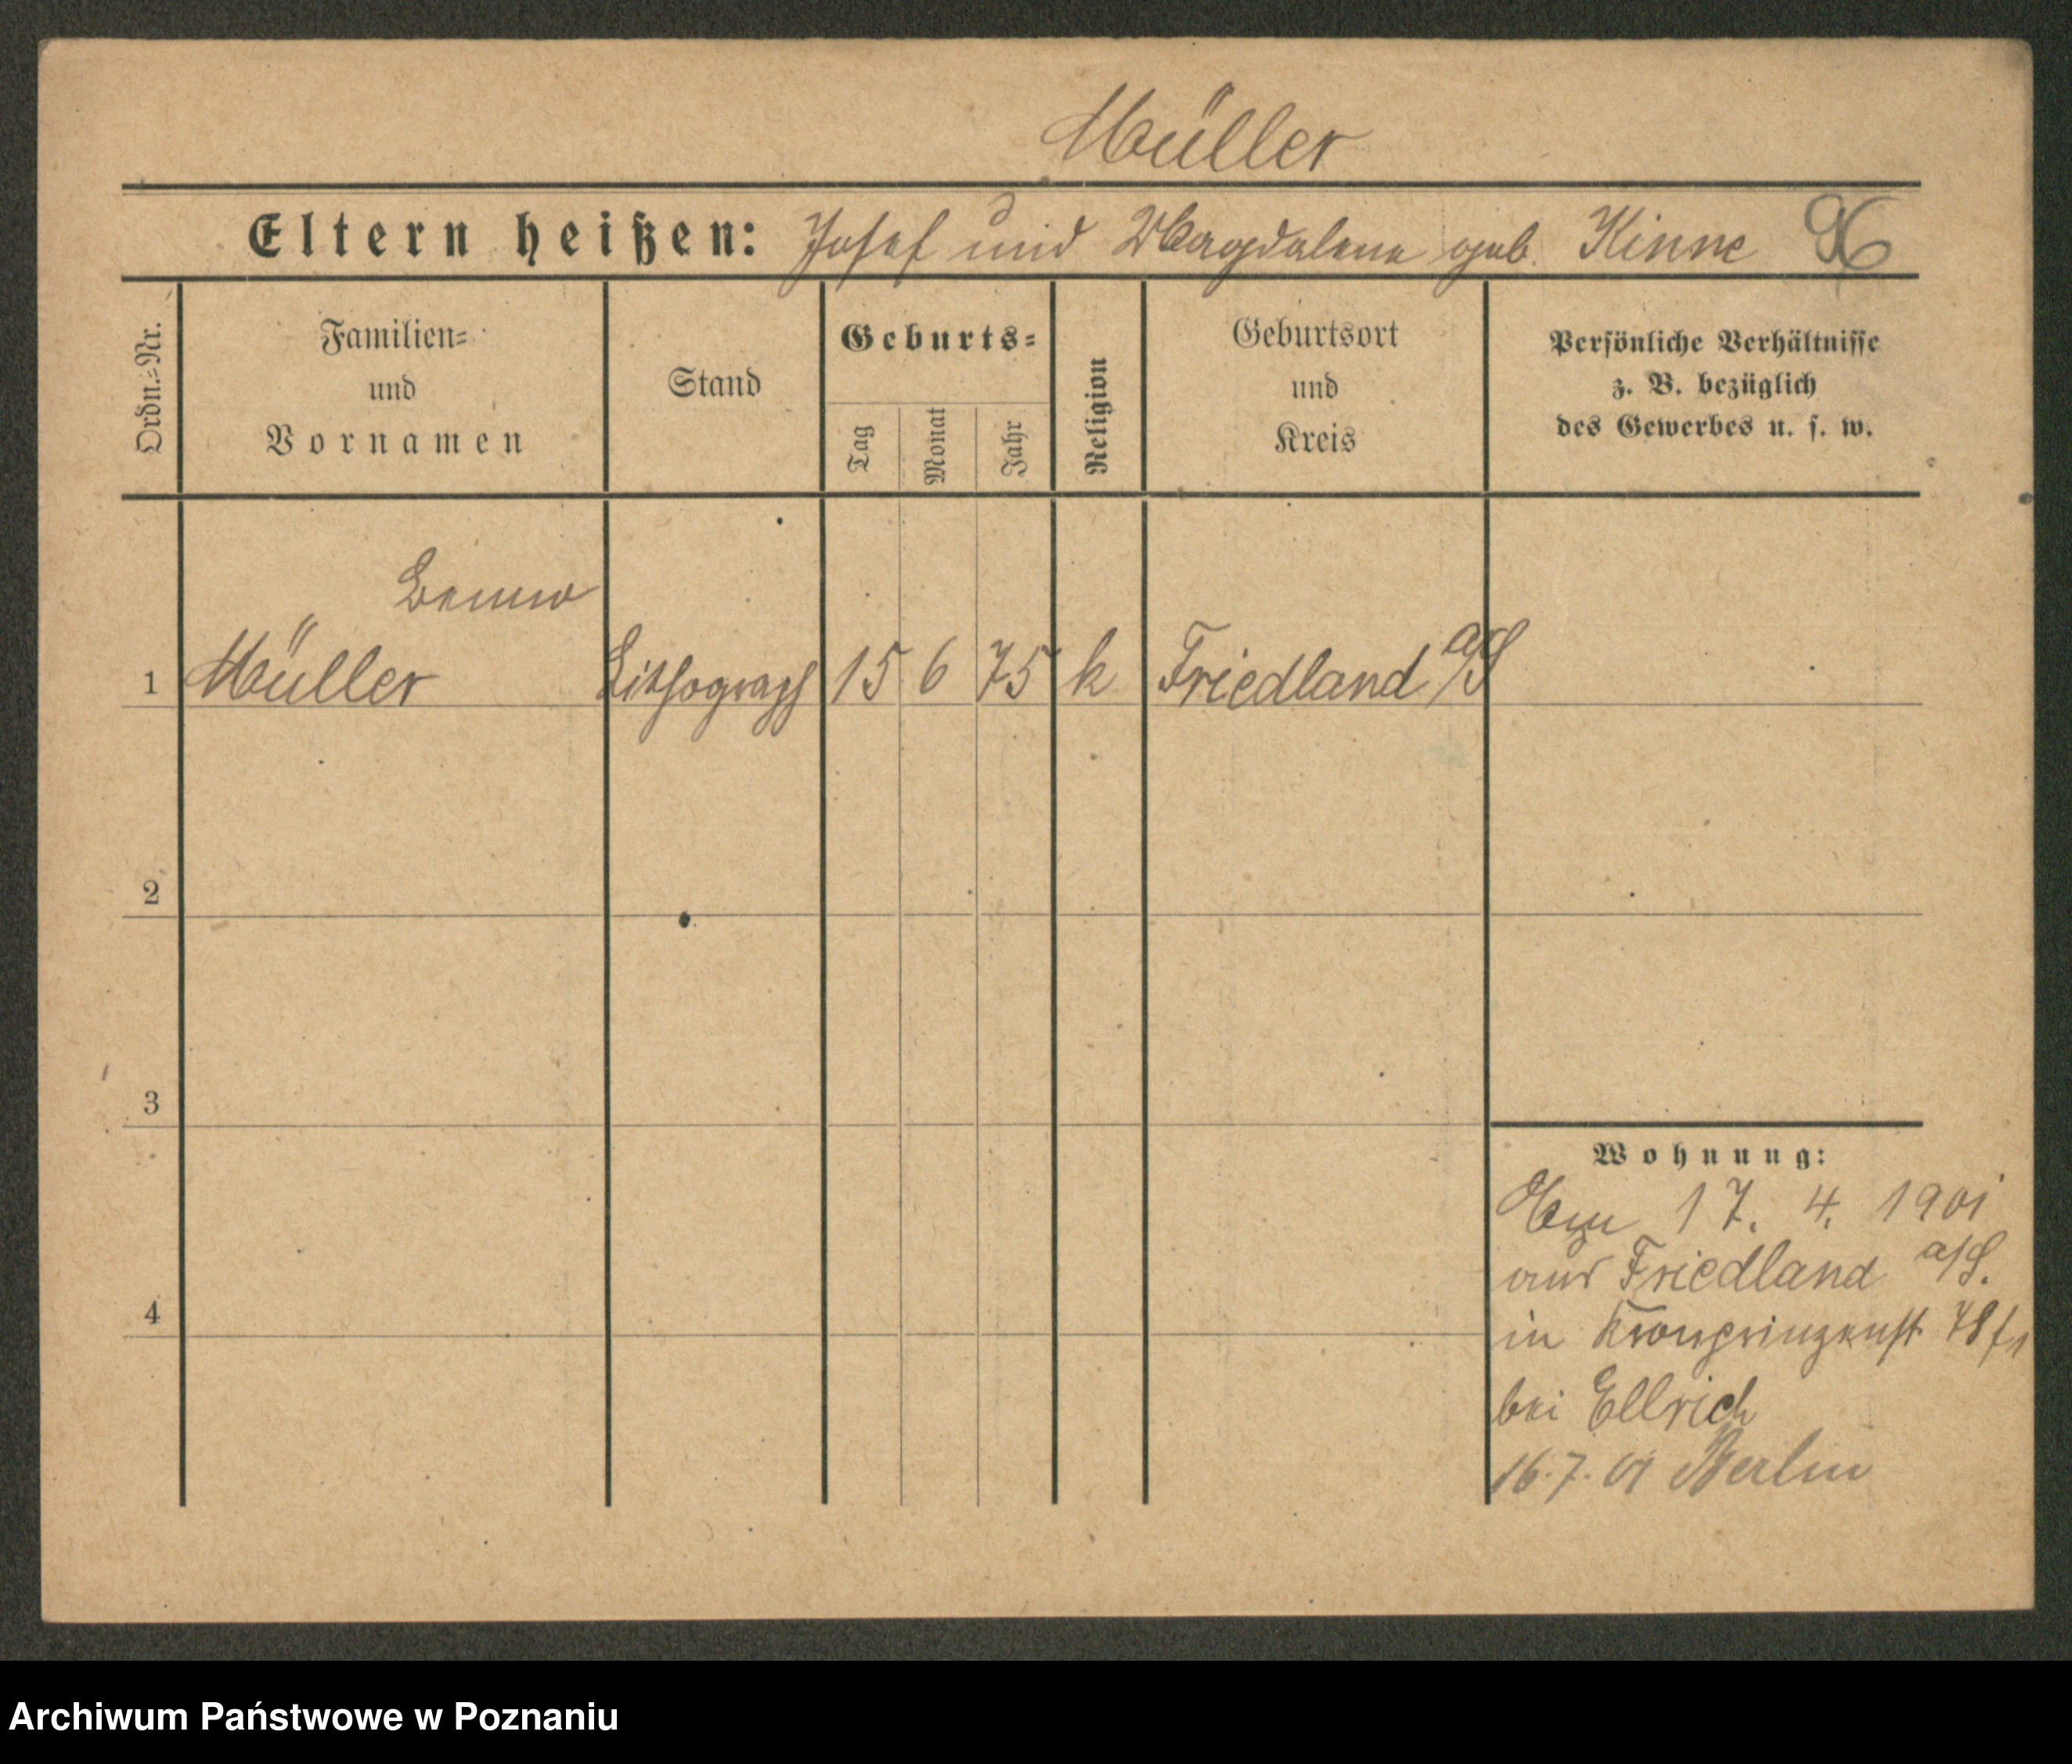 Müller
Eltern heißen: Josef und Magdalena geb. Kinne 96
Ordn.=Nr.
Familien=
und
Vornamen
Stand
Geburts=
Tag
Monat
Jahr
Religion
Geburtsort
und
Kreis
Persönliche Verhältnisse
z. B. bezüglich
des Gewerbes u. s. w.
Benno
1 Müller Lithograph 15 6 75 k Friedland a/S
2
3
4
Wohnung:
17. 4. 1901
aus Friedland a/S.
in Kronprinzenst.
bei Ellrich
16.7.01 Berlin
Archiwum Państwowe w Poznaniu